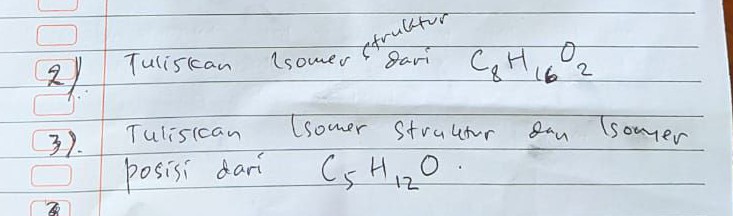 2). Tuliskan Isomer struktur dari C₈H₁₆O₂
3). Tuliskan Isomer struktur dan Isomer
posisi dari C₅H₁₂O.